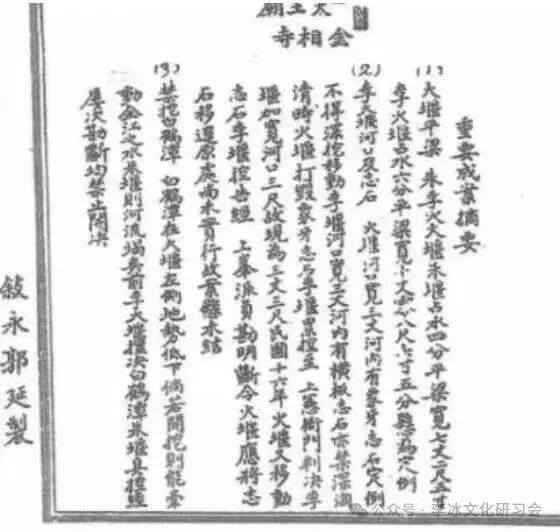 王廟
金相寺
重要成案摘要
(1) 大堰平梁 朱李火大堰朱堰占水四分平梁寬七丈二尺六寸
李火堰占水六分平梁寬十丈零八尺七寸五分懸為定例
(2) 李堰河口及志石 火堰河口寬三丈河內有象牙志石定例
不得深挖移動李堰河口寬三丈河內有橫板志石亦禁深淘
清時火堰打毀象牙志石李堰累控至 上憲衙門判決李
堰加寬河口三尺故現為三丈三尺民國十六年火堰又移動
志石李堰控告經 上峯派員勘明斷令火堰應將志
石移還原處尚未實行故案懸未結
(3) 禁挖白鶴潭 白鶴潭在大堰左側地勢低下倘若開挖則能牽
動金江之水朱堰則河流前李火堰擅決白鶴潭朱堰具控經
屢次勘斷均禁止開決
敍永郭廷製
公众号·李冰文化研习会